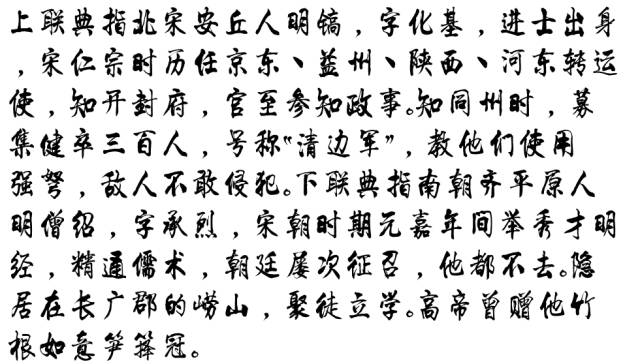 上联典指北宋安丘人明镐，字化基，进士出身
，宋仁宗时历任京东、益州、陕西、河东转运
使，知开封府，官至参知政事。知同州时，募
集健卒三百人，号称“清边军”，教他们使用
强弩，敌人不敢侵犯。下联典指南朝齐平原人
明僧绍，字承烈，宋朝时期元嘉年间举秀才明
经，精通儒术，朝廷屡次征召，他都不去。隐
居在长广郡的崂山，聚徒立学。高帝曾赠他竹
根如意笋箨冠。